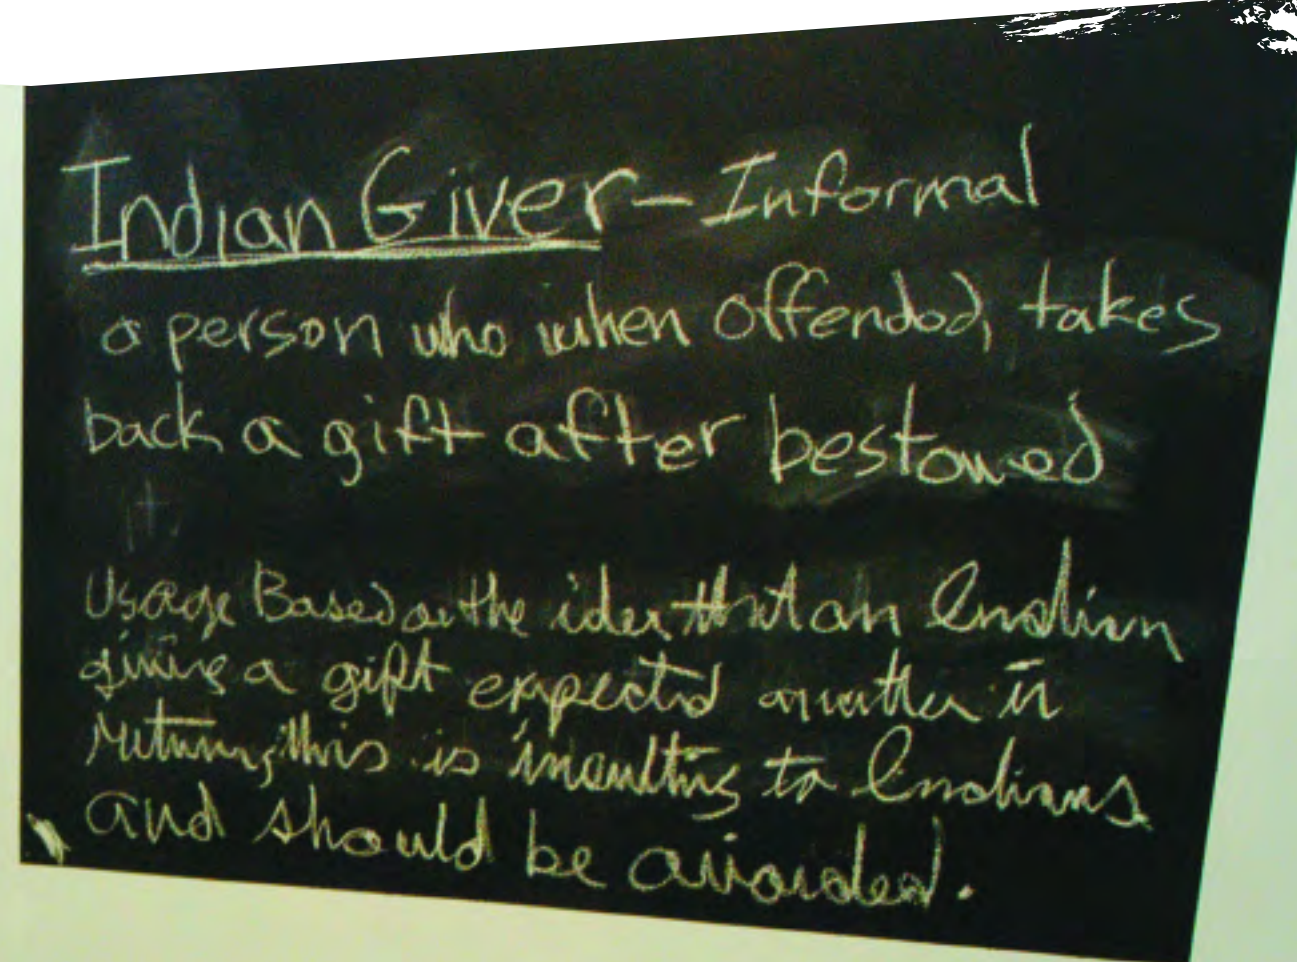 Indian Giver- Informal
a person who when offended, takes
back a gift after bestowed
it.
Usage Based on the idea that an Indian
giving a gift expected another in
return, this is insulting to Indians
and should be avoided.